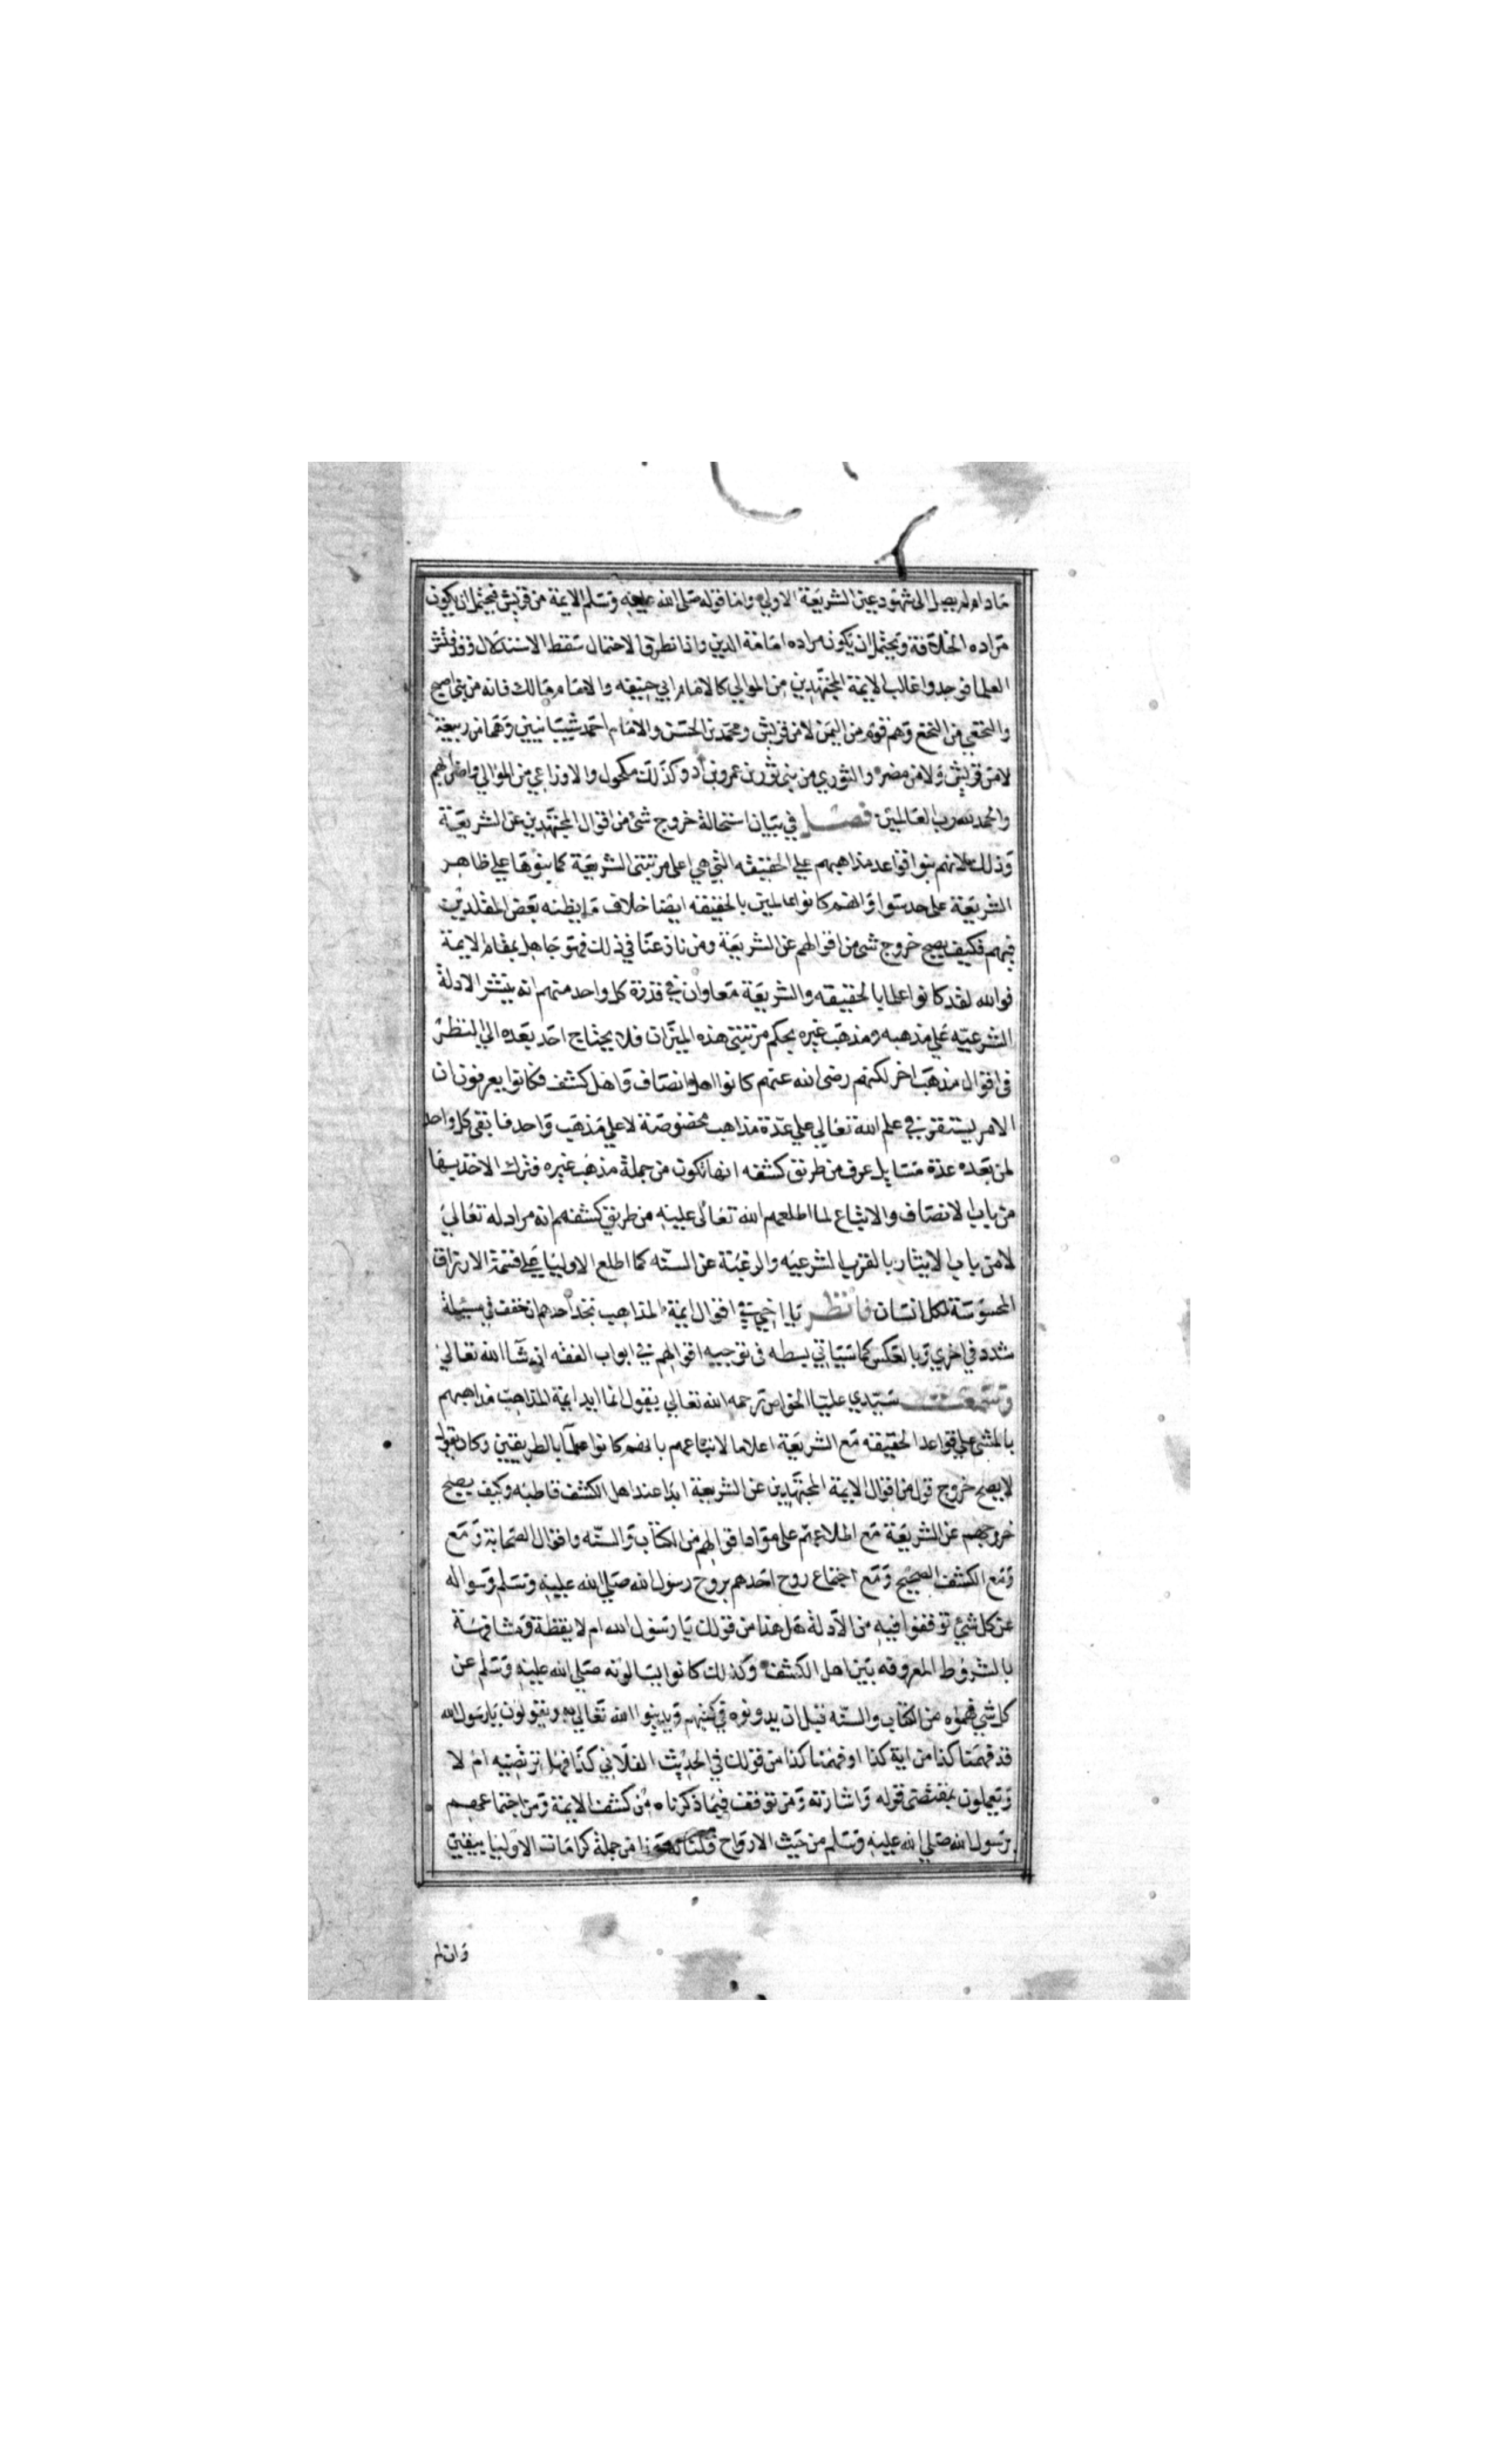 مادام لم يصل الى شهود عين الشريعة الاولي واما قوله صلى الله عليه وسلم الايمة من قريش فيحتمل ان يكون
مراده الخلافة ويحتمل ان يكون مراده امامة الدين واذا تطرق الاحتمال سقط الاستدلال وقد فتش
العلما فوجدوا غالب الايمة المجتهدين من الموالي كالامام ابي حنيفه والامام مالك فانه من بني اصبح
والنخعي من النخع وهم قوم من اليمن لا من قريش ومحمد بن الحسن والامام احمد شيبانيين وهما من ربيعة
لا من قريش ولا من مضر والثوري من بني ثور بن عمرو بن اد وكذلك مكحول والاوزاعي من الموالي واضرابهم
والحمد لله رب العالمين فصل في بيان استحالة خروج شئ من اقوال المجتهدين عن الشريعة
وذلك لانهم بنوا قواعد مذاهبهم علي الحقيقه التي هي اعلى مرتبتى الشريعة كما بنوها علي ظاهر
الشريعة على حد سوا وانهم كانوا عالمين بالحقيقه ايضا خلاف ما يظنه بعض المقلدين
فيهم فكيف يصح خروج شى من اقوالهم عن الشريعة ومن نازعنا في ذلك فهو جاهل بمقام الايمة
فوالله لقد كانوا علما بالحقيقه والشريعة معا وان في قدرة كل واحد منهم انه ينشر الادلة
الشرعيه علي مذهبه ومذهب غيره بحكم مرتبتى هذه الميزان فلا يحتاج احد بعده الي النظر
فى اقوال مذهب اخر لكنهم رضى الله عنهم كانوا اهل انصاف واهل كشف فكانوا يعرفون ان
الامر يستقر في علم الله تعالي علي عدة مذاهب مخصوصة لا علي مذهب واحد فابقى كل واحد
لمن بعده عدة مسايل عرف من طريق كشفه انها تكون من جملة مذهب غيره فترك الاخذ بها
من باب الانصاف والاتباع لما اطلعهم الله تعالى عليه من طريق كشفهم انه مراد له تعالي
لا من باب الايثار بالقرب الشرعيه والرغبة عن السنه كما اطلع الاوليا علي قسمة الارزاق
المحسوسة لكل انسان فانظر يا اخي في اقوال ايمة المذاهب تجد احدهم ان خفف في مسيلة
شدد في اخري وبالعكس كما سياتي بسطه فى توجيه اقوالهم في ابواب الفقه ان شا الله تعالي
وسمعت سيدي عليا الخواص رحمه الله تعالي يقول انما ايد ايمة المذاهب مذاهبهم
بالمشي علي قواعد الحقيقه مع الشريعة اعلاما لاتباعهم بانهم كانوا علما بالطريقين وكان يقول
لا يصح خروج قول من اقوال الايمة المجتهدين عن الشريعة ابدا عند اهل الكشف قاطبه وكيف يصح
خروجهم عن الشريعة مع اطلاعهم على مواد اقوالهم من الكتاب والسنه واقوال الصحابة ومع
ومع الكشف الصحيح ومع اجتماع روح احدهم بروح رسول الله صلي الله عليه وسلم وسواله
عن كل شئ توقفوا فيه من الادلة هل هذا من قولك يا رسول الله ام لا يقظة ومشافهة
بالشروط المعروفه بين اهل الكشف وكذلك كانوا يسالونه صلي الله عليه وسلم عن
كل شي فهموه من الكتاب والسنه قبل ان يدونوه في كتبهم ويدينوا الله تعالي به ويقولون يا رسول الله
قد فهمنا كذا من اية كذا او فهمنا كذا من قولك في الحديث الفلاني كذا فهل ترتضيه ام لا
ويعملون بمقتضى قوله واشارته ومن توقف فيما ذكرناه من كشف الايمة ومن اجتماعهم
برسول الله صلي الله عليه وسلم من حيث الارواح قلنا له هذا من جملة كرامات الاوليا بيقين
وان لم